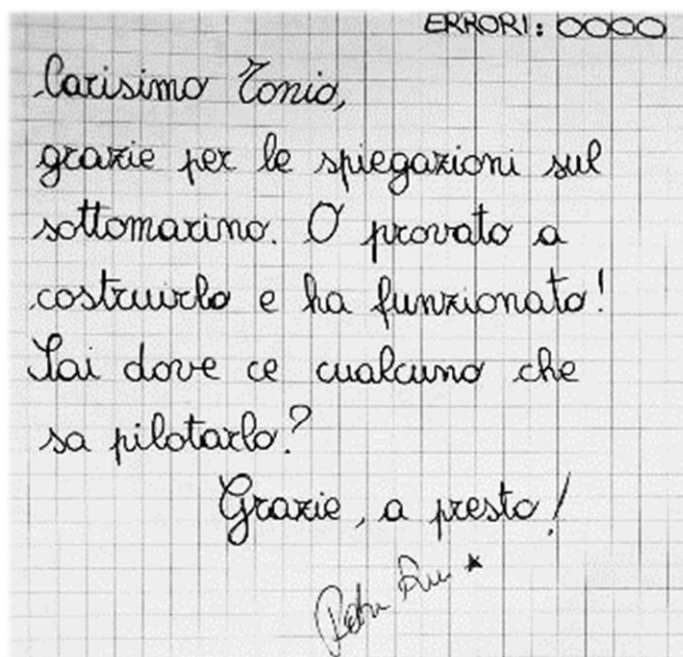 ERRORI: OOOO
Carisimo Tonio,
grazie per le spiegazioni sul
sottomarino. O provato a
costruirlo e ha funzionato!
Sai dove ce cualcuno che
sa pilotarlo?
Grazie, a presto!